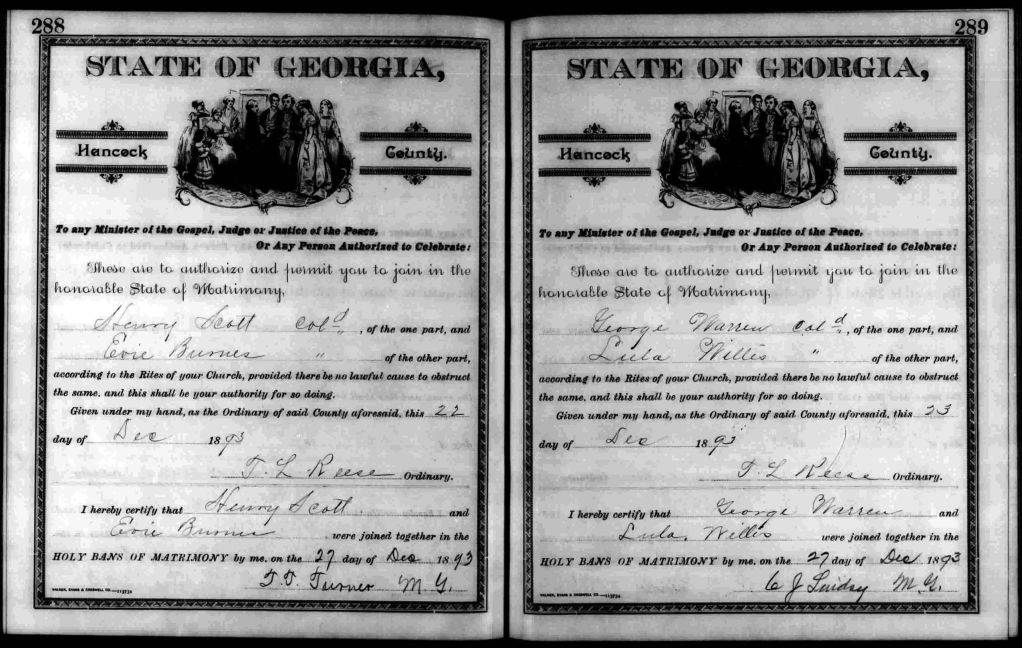 288
STATE OF GEORGIA,
Hancock County.
To any Minister of the Gospel, Judge or Justice of the Peace,
Or Any Person Authorized to Celebrate:
These are to authorize and permit you to join in the
honorable State of Matrimony,
Henry Scott Col'd, of the one part, and
Evie Burnes " of the other part,
according to the Rites of your Church, provided there be no lawful cause to obstruct
the same, and this shall be your authority for so doing.
Given under my hand, as the Ordinary of said County aforesaid, this 22
day of Dec 1893
T. L Reese Ordinary.
I hereby certify that Henry Scott and
Evie Burnes were joined together in the
HOLY BANS OF MATRIMONY by me, on the 27 day of Dec 1893
T. T. Turner M. G.
289
STATE OF GEORGIA,
Hancock County.
To any Minister of the Gospel, Judge or Justice of the Peace,
Or Any Person Authorized to Celebrate:
These are to authorize and permit you to join in the
honorable State of Matrimony,
George Warren Col'd, of the one part, and
Lula Willis " of the other part,
according to the Rites of your Church, provided there be no lawful cause to obstruct
the same, and this shall be your authority for so doing.
Given under my hand, as the Ordinary of said County aforesaid, this 23
day of Dec 1893
T. L Reese Ordinary.
I hereby certify that George Warren and
Lula Willis were joined together in the
HOLY BANS OF MATRIMONY by me, on the 27 day of Dec 1893
C J Lindsy M. G.